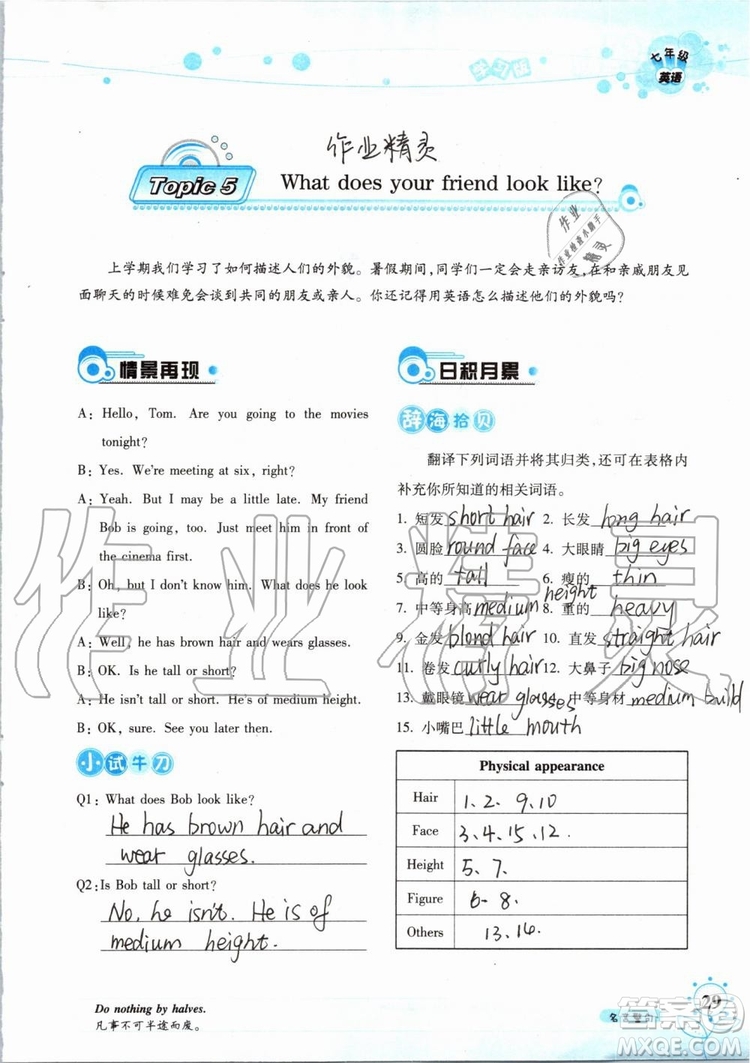 七年级
英语
学习版
作业精灵
Topic 5
What does your friend look like?
作业
作业检查小助手
精灵
上学期我们学习了如何描述人们的外貌。暑假期间,同学们一定会走亲访友,在和亲戚朋友见
面聊天的时候难免会谈到共同的朋友或亲人。你还记得用英语怎么描述他们的外貌吗?
情景再现
A: Hello, Tom. Are you going to the movies
tonight?
B: Yes. We're meeting at six, right?
A: Yeah. But I may be a little late. My friend
Bob is going, too. Just meet him in front of
the cinema first.
B: Oh, but I don't know him. What does he look
like?
A: Well, he has brown hair and wears glasses.
B: OK. Is he tall or short?
A: He isn't tall or short. He's of medium height.
B: OK, sure. See you later then.
小试牛刀
Q1: What does Bob look like?
He has brown hair and
wear glasses.
Q2: Is Bob tall or short?
No, he isn't. He is of
medium height.
日积月累
辞海拾贝
翻译下列词语并将其归类,还可在表格内
补充你所知道的相关词语。
1. 短发 short hair 2. 长发 long hair
3. 圆脸 round face 4. 大眼睛 big eyes
5. 高的 tall 6. 瘦的 thin
7. 中等身高 medium height 8. 重的 heavy
9. 金发 blond hair 10. 直发 straight hair
11. 卷发 curly hair 12. 大鼻子 big nose
13. 戴眼镜 wear glasses 14. 中等身材 medium build
15. 小嘴巴 little mouth
Physical appearance
Hair 1、2、9、10
Face 3、4、15、12.
Height 5、7.
Figure 6、8.
Others 13、14.
Do nothing by halves.
凡事不可半途而废。
29
作业精灵
答案圈
MXQE.COM